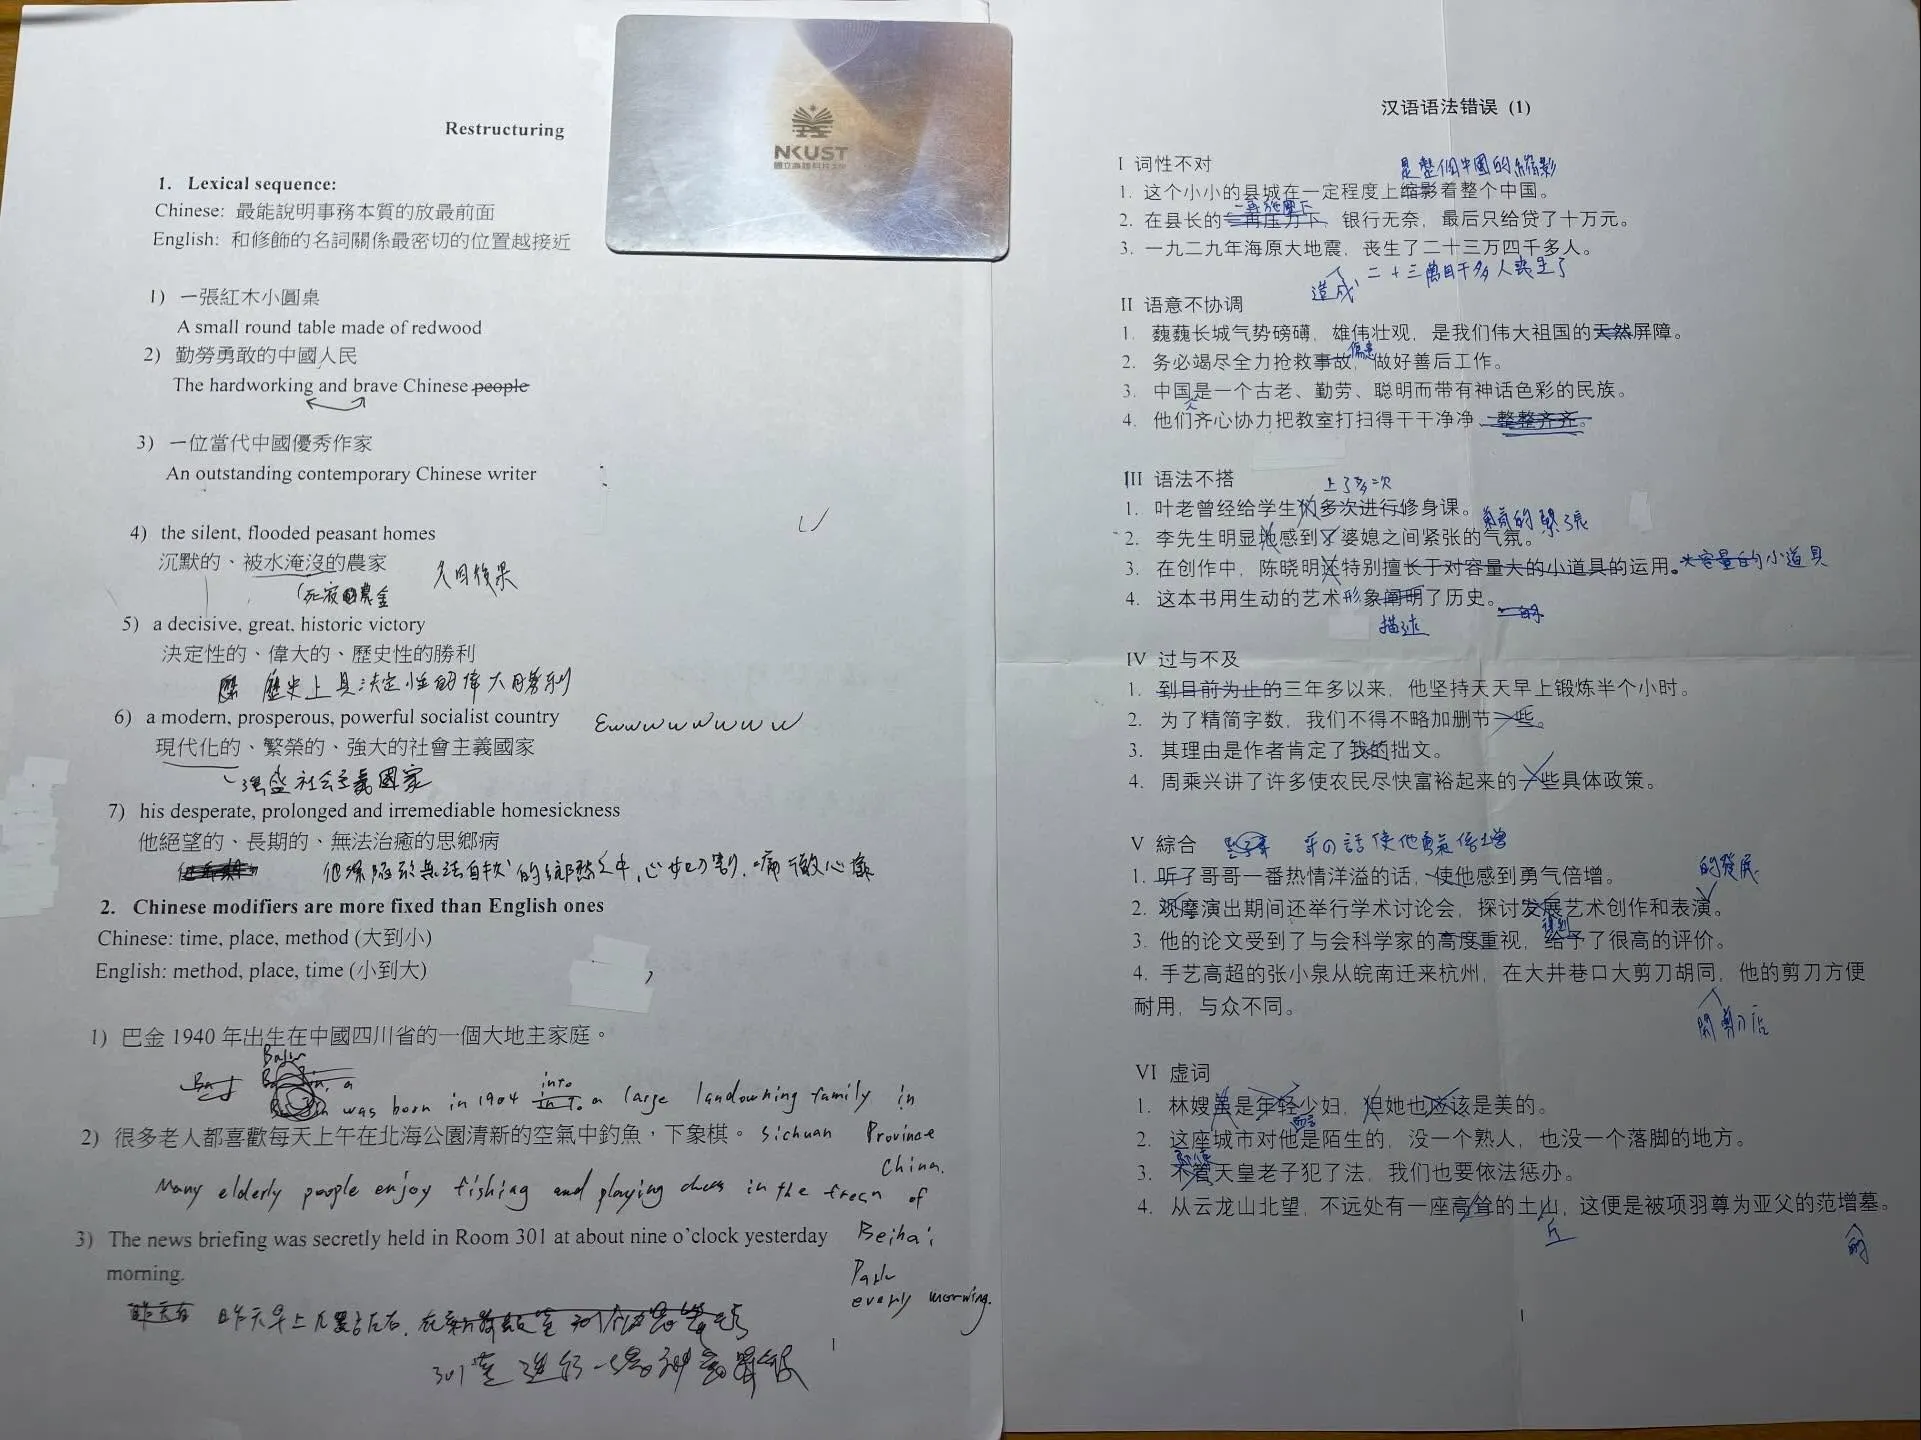 Restructuring
1. Lexical sequence:
Chinese: 最能說明事務本質的放最前面
English: 和修飾的名詞關係最密切的位置越接近
1) 一張紅木小圓桌
A small round table made of redwood
2) 勤勞勇敢的中國人民
The hardworking and brave Chinese people
3) 一位當代中國優秀作家
An outstanding contemporary Chinese writer
4) the silent, flooded peasant homes
沉默的、被水淹沒的農家
5) a decisive, great, historic victory
決定性的、偉大的、歷史性的勝利
歷史上具決定性的偉大勝利
6) a modern, prosperous, powerful socialist country
現代化的、繁榮的、強大的社會主義國家
強盛社會主義國家
7) his desperate, prolonged and irremediable homesickness
他絕望的、長期的、無法治癒的思鄉病
他深陷於無法自拔的鄉愁之中,心如刀割,痛徹心扉
2. Chinese modifiers are more fixed than English ones
Chinese: time, place, method (大到小)
English: method, place, time (小到大)
1) 巴金 1940 年出生在中國四川省的一個大地主家庭。
Bajin
was born in 1904 into a large landowning family in
Sichuan Province
China.
2) 很多老人都喜歡每天上午在北海公園清新的空氣中釣魚，下象棋。
Many elderly people enjoy fishing and playing chess in the fresh of
Beihai
Park
every morning.
3) The news briefing was secretly held in Room 301 at about nine o'clock yesterday
morning.
昨天早上九點左右,在
301室進行一場神密
NKUST
國立高雄科技大學
汉语语法错误 (1)
I 词性不对
是整個中國的縮影
1. 这个小小的县城在一定程度上缩影着整个中国。
一再施壓下
2. 在县长的一再压力下，银行无奈，最后只给贷了十万元。
3. 一九二九年海原大地震，丧生了二十三万四千多人。
造成 二十三萬四千多人喪生了
II 语意不协调
1. 巍巍长城气势磅礴，雄伟壮观，是我们伟大祖国的天然屏障。
傷患
2. 务必竭尽全力抢救事故，做好善后工作。
3. 中国是一个古老、勤劳、聪明而带有神话色彩的民族。
人
4. 他们齐心协力把教室打扫得干干净净、整整齐齐。
III 语法不搭
上了多次
1. 叶老曾经给学生们多次进行修身课。
氣氛的緊張
2. 李先生明显地感到了婆媳之间紧张的气氛。
3. 在创作中，陈晓明还特别擅长于对容量大的小道具的运用。大容量的小道具
4. 这本书用生动的艺术形象阐明了历史。
描述
IV 过与不及
1. 到目前为止的三年多以来，他坚持天天早上锻炼半个小时。
2. 为了精简字数，我们不得不略加删节一些。
3. 其理由是作者肯定了我的拙文。
4. 周乘兴讲了许多使农民尽快富裕起来的一些具体政策。
V 綜合
哥の話使他勇氣倍增
1. 听了哥哥一番热情洋溢的话，使他感到勇气倍增。
的發展
2. 观摩演出期间还举行学术讨论会，探讨发展艺术创作和表演。
得到
3. 他的论文受到了与会科学家的高度重视，给予了很高的评价。
4. 手艺高超的张小泉从皖南迁来杭州，在大井巷口大剪刀胡同，他的剪刀方便
耐用，与众不同。
開剪刀店
VI 虚词
1. 林嫂虽是年轻少妇，但她也应该是美的。
2. 这座城市对他是陌生的，没一个熟人，也没一个落脚的地方。
3. 不管天皇老子犯了法，我们也要依法惩办。
4. 从云龙山北望，不远处有一座高耸的土山，这便是被项羽尊为亚父的范增墓。
丘
的
1
1